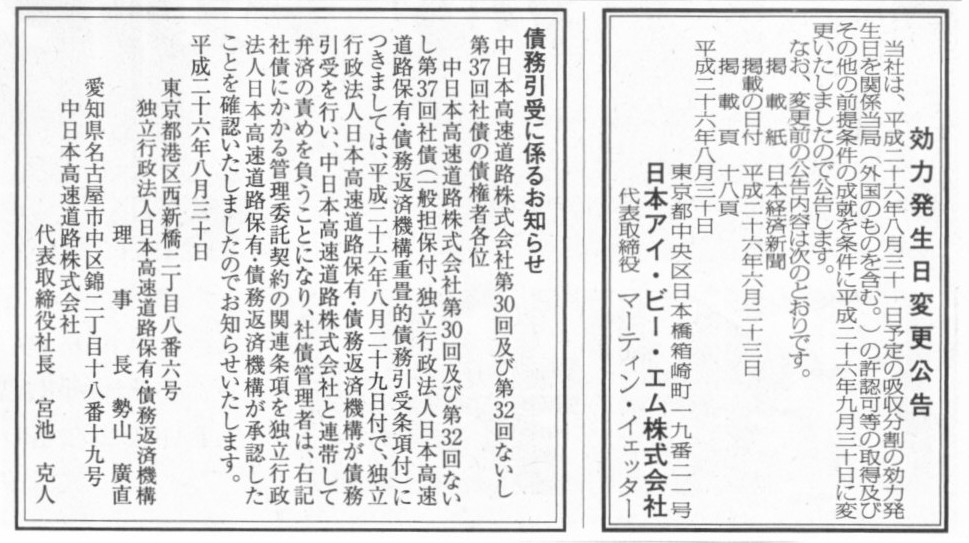 効力発生日変更公告
当社は、平成二十六年八月三十一日予定の吸収分割の効力発
生日を関係当局（外国のものを含む。）の許認可等の取得及び
その他の前提条件の成就を条件に平成二十六年九月三十日に変
更いたしましたので公告します。
なお、変更前の公告内容は次のとおりです。
掲載紙　日本経済新聞
掲載の日付　平成二十六年六月二十三日
掲載頁　十八頁
平成二十六年八月三十日
東京都中央区日本橋箱崎町一九番二一号
日本アイ・ビー・エム株式会社
代表取締役　マーティン・イェッター
債務引受に係るお知らせ
中日本高速道路株式会社第30回及び第32回ないし
第37回社債の債権者各位
中日本高速道路株式会社第30回及び第32回ない
し第37回社債（一般担保付、独立行政法人日本高速
道路保有・債務返済機構重畳的債務引受条項付）に
つきましては、平成二十六年八月二十九日付で、独立
行政法人日本高速道路保有・債務返済機構が債務
引受を行い、中日本高速道路株式会社と連帯して
弁済の責めを負うことになり、社債管理者は、右記
社債にかかる管理委託契約の関連条項を独立行政
法人日本高速道路保有・債務返済機構が承認した
ことを確認いたしましたのでお知らせいたします。
平成二十六年八月三十日
東京都港区西新橋二丁目八番六号
独立行政法人日本高速道路保有・債務返済機構
理事長　勢山　廣直
愛知県名古屋市中区錦二丁目十八番十九号
中日本高速道路株式会社
代表取締役社長　宮池　克人